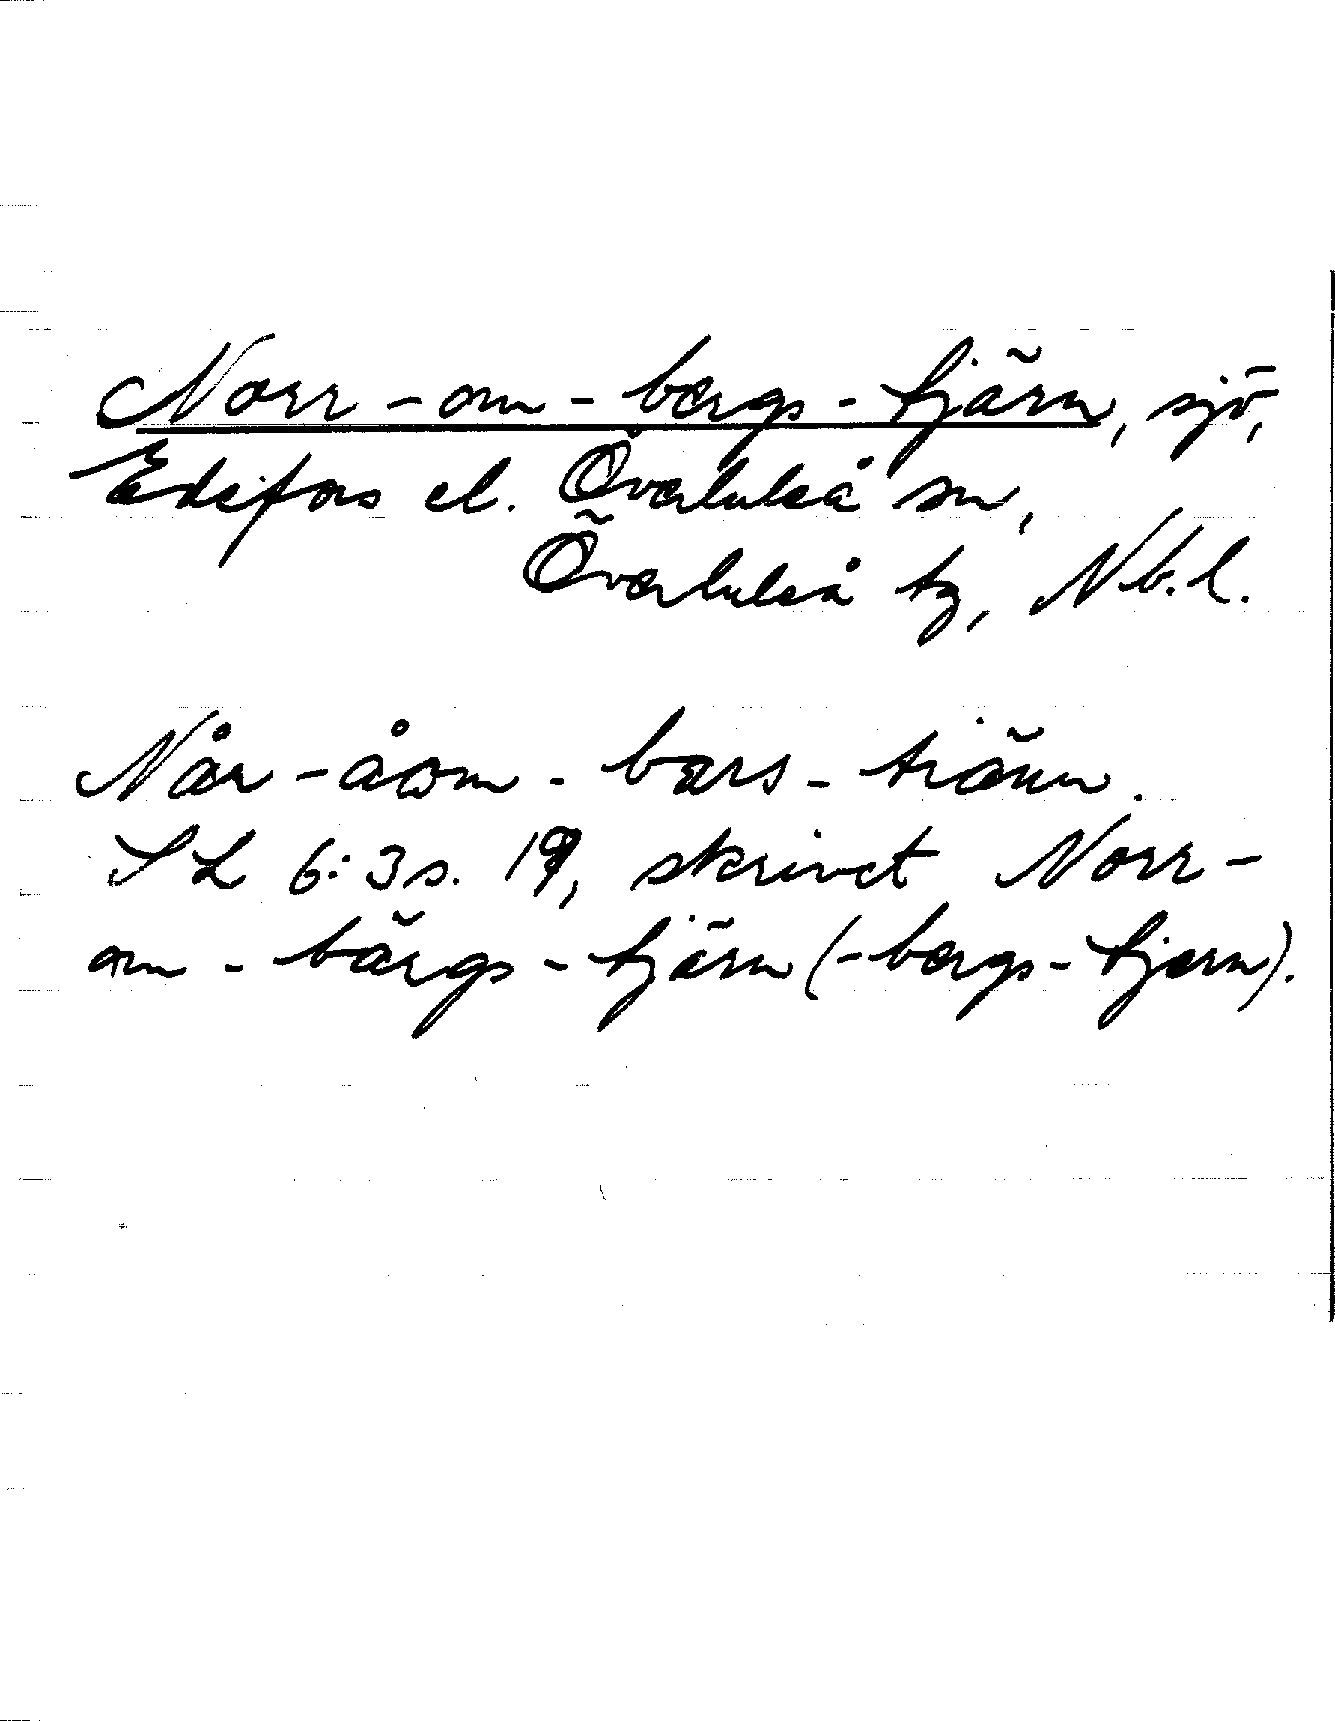 Norr-om-bergs-tjärn, sjö,
Edefors el. Överluleå sn,
Överluleå tg, Nb.l.
Når-åom-bars-tiänn.
SL 6:3 s. 19, skrivet Norr-
om-bärgs-tjärn (-bergs-tjern).